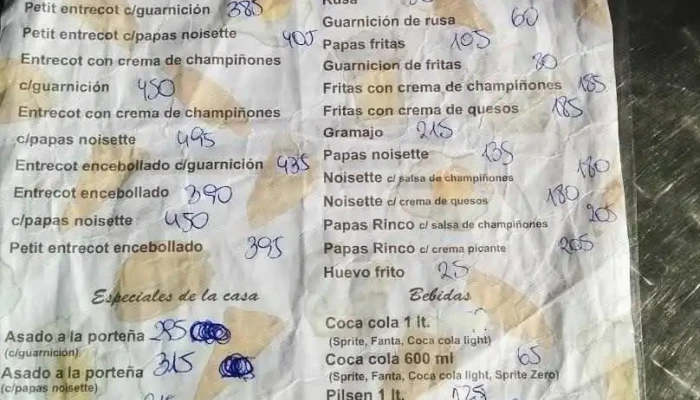 Petit entrecot c/guarnición 385
Petit entrecot c/papas noisette 405
Entrecot con crema de champiñones
c/guarnición 450
Entrecot con crema de champiñones
c/papas noisette 495
Entrecot encebollado c/guarnición 435
Entrecot encebollado 390
c/papas noisette 450
Petit entrecot encebollado 395
Especiales de la casa
Asado a la porteña 285
(c/guarnición)
Asado a la porteña 315
(c/papas noisette)
Rusa
Guarnición de rusa 60
Papas fritas 105
Guarnicion de fritas 80
Fritas con crema de champiñones 185
Fritas con crema de quesos 185
Gramajo 215
Papas noisette 135
Noisette c/ salsa de champiñones 180
Noisette c/ crema de quesos 180
Papas Rinco c/ salsa de champiñones 205
Papas Rinco c/ crema picante 205
Huevo frito 25
Bebidas
Coca cola 1 lt.
(Sprite, Fanta, Coca cola light)
Coca cola 600 ml 65
(Sprite, Fanta, Coca cola light, Sprite Zero)
Pilsen 1 lt. 125